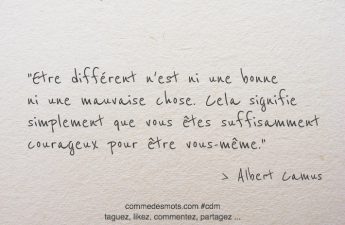 "Etre différent n'est ni une bonne
ni une mauvaise chose. Cela signifie
simplement que vous êtes suffisamment
courageux pour être vous-même."
> Albert Camus
commedesmots.com #cdm
taguez, likez, commentez, partagez ...